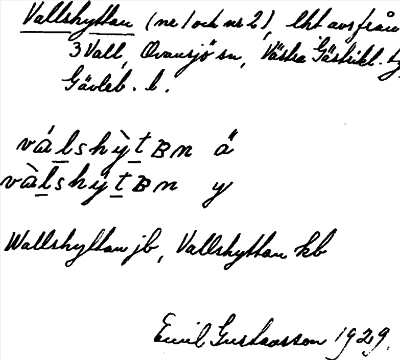 Vallshyttan (nr 1 och nr 2), lht avs från
3 Vall, Ovansjö sn, Västra Gästrikl. tg
Gävleb. l.
válshỳtBn ä
vàlshýtBn y
Wallshyttan jb, Vallshyttan kb
Emil Gustavsson 1929.